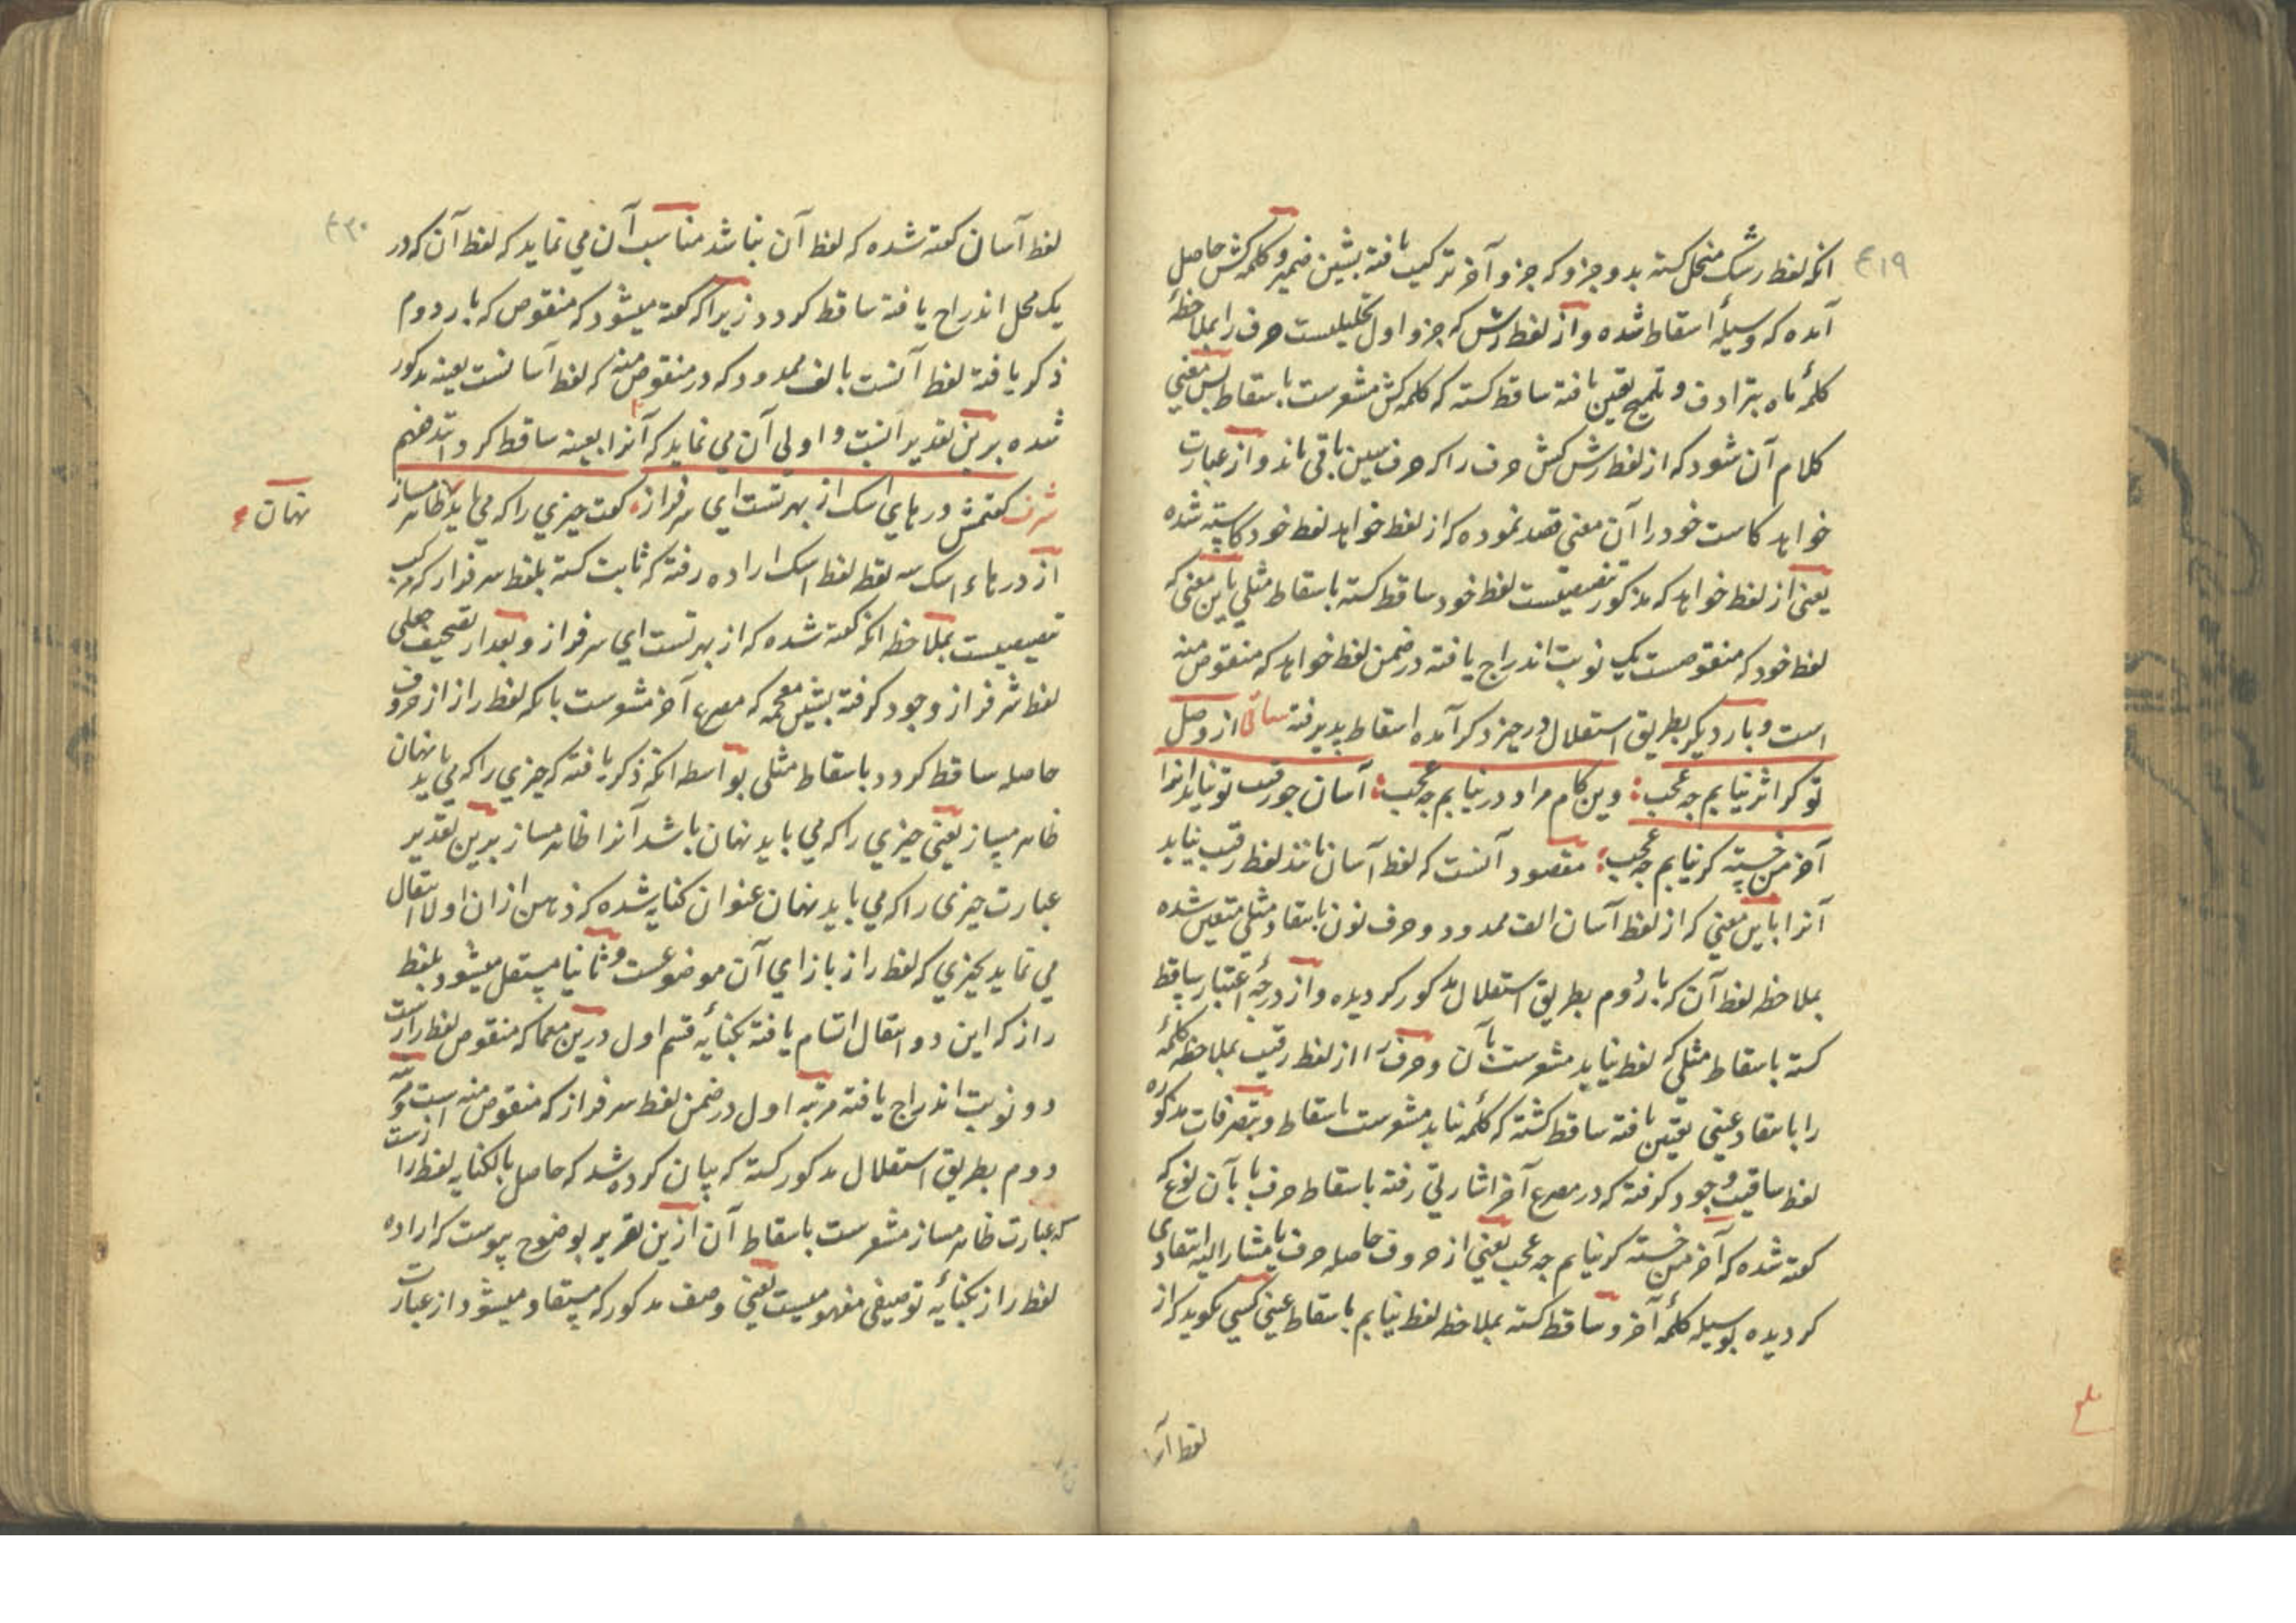 ۴۱۹
انکه لفظ رشک منحل کشته بدو جزو که جزو آخر ترکیب یافته بشین ضمیر و کلمه کش حاصل
آمده که وسیلهٔ اسقاط شده و از لفظ رش که جزو اول تحلیلیست حرف را بملاحظهٔ
کلمهٔ ماه بترادف و تلمیح تعین یافته ساقط کشته که کلمه کش مشعرست باسقاط پس معنی
کلام آن شود که از لفظ رش کش حرف را که حرف سین باقی ماند و از عبارت
خواهد کاست خود را آن معنی قصد نموده که از لفظ خواهد لفظ خود کاسته شده
یعنی از لفظ خواهد که مذکور تنصیصیست لفظ خود ساقط کشته باسقاط مثلی باین معنی که
لفظ خود که منقوصست یک نوبت اندراج یافته در ضمن لفظ خواهد که منقوص منه
است و بار دیکر بطریق استقلال در حیز ذکر آمده اسقاط پذیرفته ساقی از وصل
تو کر اثر نیابم چه عجب: وین کام مراد در نیابم چه عجب: آسان چو رقیب تو نیابد آنرا
آخر من خسته کر نیابم چه عجب: مقصود آنست که لفظ آسان مانند لفظ رقیب نیابد
آنرا باین معنی که از لفظ آسان الف ممدود و حرف نون بانتقاد مثلی متعین شده
بملاحظه لفظ آن که بار دوم بطریق استقلال مذکور کردیده و از درجهٔ اعتبار ساقط
کشته باسقاط مثلی که لفظ نیابد مشعرست بآن و حرف را از لفظ رقیب بملاحظه کلمهٔ
را بانتقاد عینی تعین یافته ساقط کشته که کلمهٔ نیابد مشعرست باسقاط و بتصرفات مذکوره
لفظ ساقیب وجود کرفته که در مصرع آخر اشارتی رفته باسقاط حرف با بآن نوع که
کفته شده که آخر من خسته کر نیابم چه عجب یعنی از حروف حاصله حرف با مشار الیه انتقادی
کردیده بوسیله کلمهٔ آخر و ساقط کشته بملاحظه لفظ نیابم باسقاط عینی کسی نکوید که از
لفظ آسا
لفظ آسان کفته شده که لفظ آن نباشد مناسب آن می نماید که لفظ آن که در
یک محل اندراج یافته ساقط کردد زیرا که کفته میشود که منقوص که بار دوم
ذکر یافته لفظ آنست بالف ممدود که در منقوص منه که لفظ آسانست بعینه مذکور
شده برین تقدیر انسب و اولی آن می نماید که آنرا بعینه ساقط کردانند فهم
شرف کفتمش درهای اشک از بهر تست ای سرفراز کفت چیزی را که می باید ظاهر مساز
نهان
از درهاء اشک سه نقطه لفظ اشک اراده رفته که ثابت کشته بلفظ سرفراز که مرکب
تنصیصیست بملاحظه انکه کفته شده که از بهر تست ای سرفراز و بعد از تصحیف جعلی
لفظ شرفراز وجود کرفته بشین معجمه که مصرع آخر مشعرست بانکه لفظ راز از حروف
حاصله ساقط کردد باسقاط مثلی بواسطه انکه ذکر یافته که چیزی را که می باید نهان
ظاهر مساز یعنی چیزی را که می باید نهان باشد آنرا ظاهر مساز برین تقدیر
عبارت چیزی را که می باید نهان عنوان کنایه شده که ذهن از ان اولا انتقال
می نماید بچیزی که لفظ راز بازای آن موضوعست و ثانیا منتقل میشود بلفظ
راز که این دو انتقال اتسام یافته بکنایهٔ قسم اول درین معما که منقوص لفظ رازست
دو نوبت اندراج یافته مرتبه اول در ضمن لفظ سرفراز که منقوص منه است و مرتبه
دوم بطریق استقلال مذکور کشته که بیان کرده شد که حاصل بالکنایه لفظ رازست
که عبارت ظاهر مساز مشعرست باسقاط آن ازین تقریر بوضوح پیوست که اراده
لفظ راز بکنایهٔ توصیفی مفهومیست یعنی وصف مذکور که مستفاد میشود از عبارت